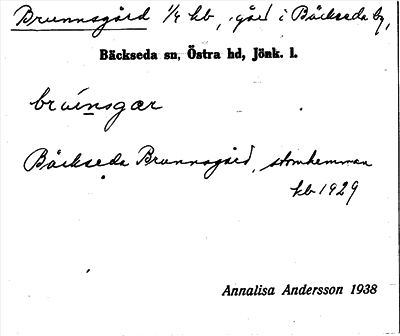 Brunnsgård 1/4 kb, gård i Bäckseda by,
Bäckseda sn, Östra hd, Jönk. l.
bruinsgær
Bäckseda Brunnsgård, stomhemman
kb 1929
Annalisa Andersson 1938